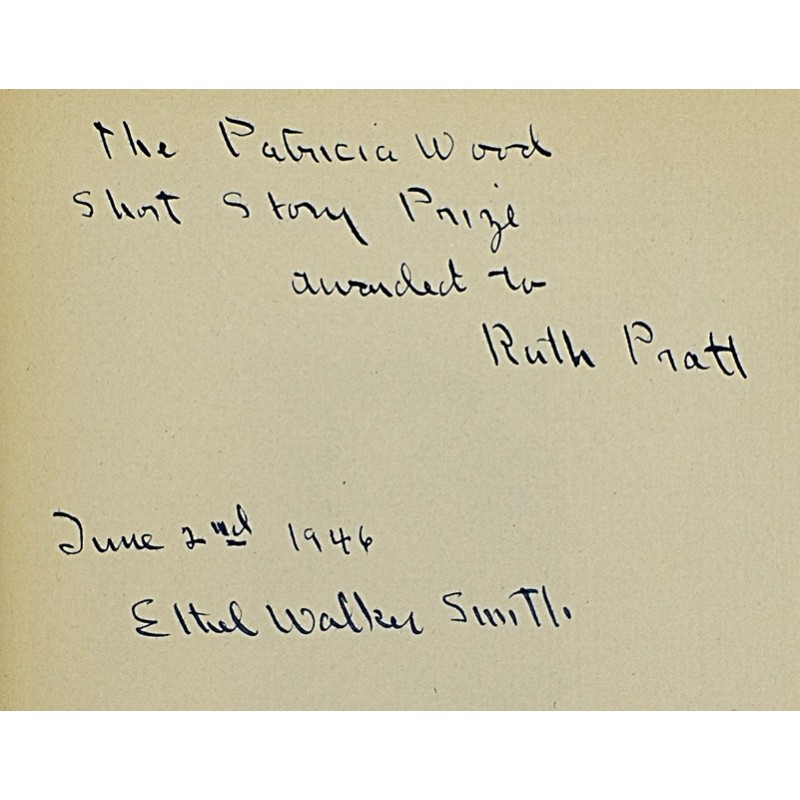 The Patricia Wood
Short Story Prize
awarded to
Ruth Pratt
June 2nd 1946
Ethel Walker Smith.